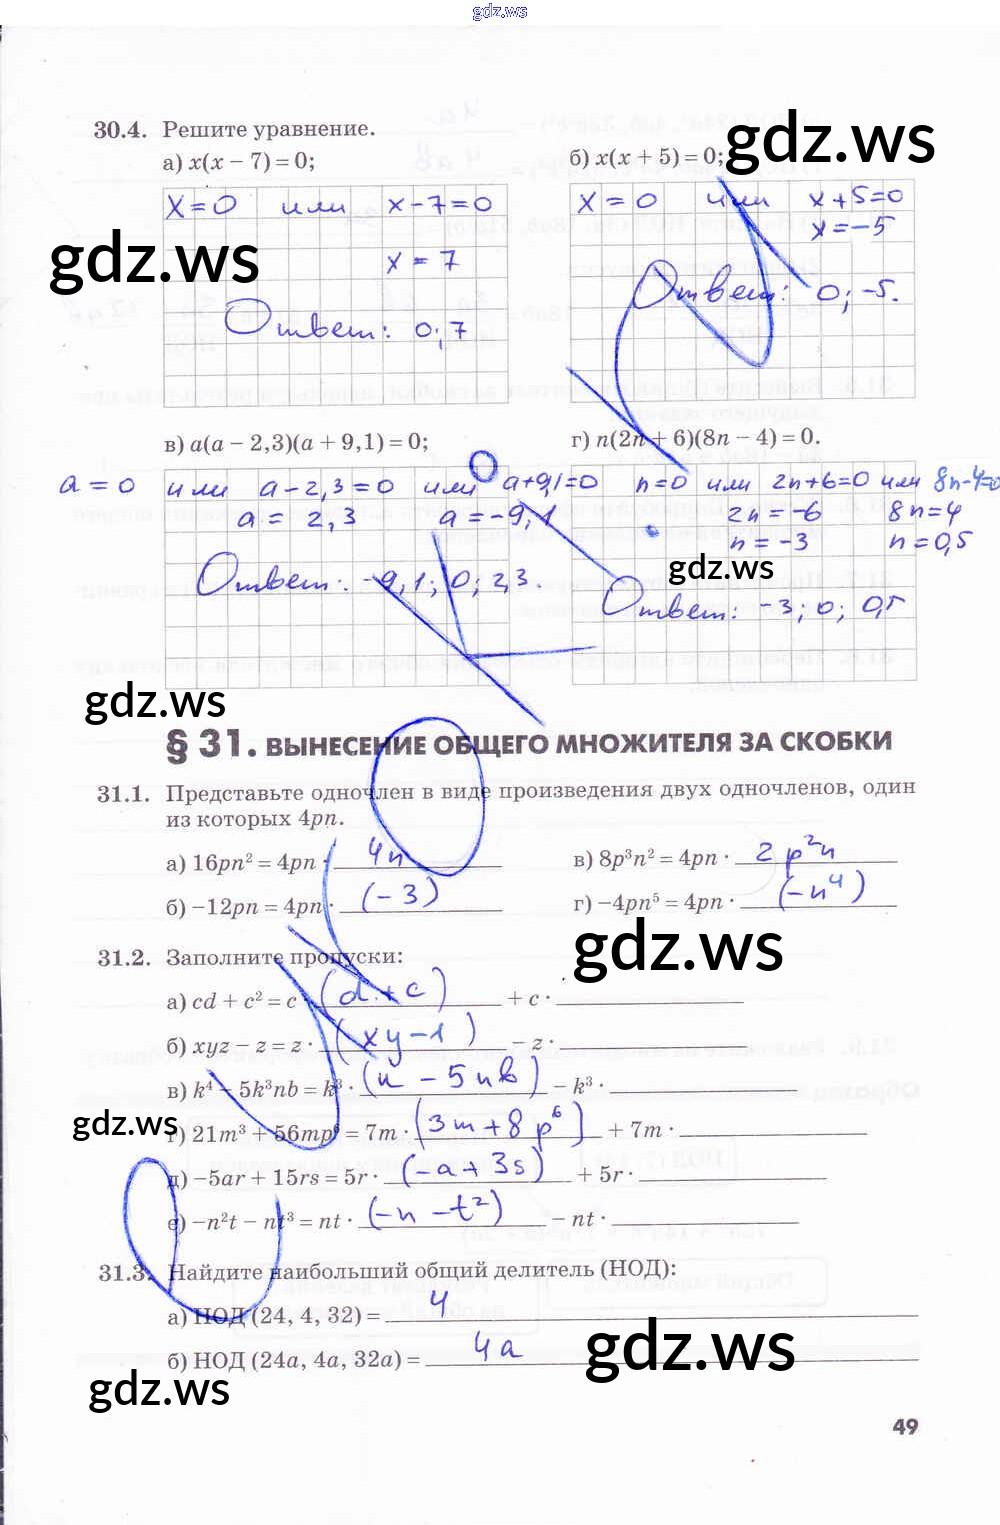 gdz.ws
30.4. Решите уравнение.
а) x(x − 7) = 0;
б) x(x + 5) = 0;
gdz.ws
x = 0 или x − 7 = 0
x = 7
Ответ: 0; 7
x = 0 или x + 5 = 0
x = −5
Ответ: 0; −5.
gdz.ws
в) a(a − 2,3)(a + 9,1) = 0;
г) n(2n + 6)(8n − 4) = 0.
a = 0 или a − 2,3 = 0 или a + 9,1 = 0
a = 2,3 a = −9,1
Ответ: −9,1; 0; 2,3.
n = 0 или 2n + 6 = 0 или 8n − 4 = 0
2n = −6 8n = 4
n = −3 n = 0,5
gdz.ws
Ответ: −3; 0; 0,5
gdz.ws
§ 31. ВЫНЕСЕНИЕ ОБЩЕГО МНОЖИТЕЛЯ ЗА СКОБКИ
31.1. Представьте одночлен в виде произведения двух одночленов, один
из которых 4pn.
а) 16pn² = 4pn · 4n
в) 8p³n² = 4pn · 2p²n
б) −12pn = 4pn · (−3)
г) −4pn⁵ = 4pn · (−n⁴)
gdz.ws
31.2. Заполните пропуски:
а) cd + c² = c · (d + c) + c ·
б) xyz − z = z · (xy − 1) − z ·
в) k⁴ − 5k³nb = k³ · (k − 5nb) − k³ ·
gdz.ws
г) 21m³ + 56mp⁶ = 7m · (3m + 8p⁶) + 7m ·
д) −5ar + 15rs = 5r · (−a + 3s) + 5r ·
е) −n²t − nt³ = nt · (−n − t²) − nt ·
31.3. Найдите наибольший общий делитель (НОД):
а) НОД (24, 4, 32) = 4
gdz.ws
б) НОД (24a, 4a, 32a) = 4a
gdz.ws
49